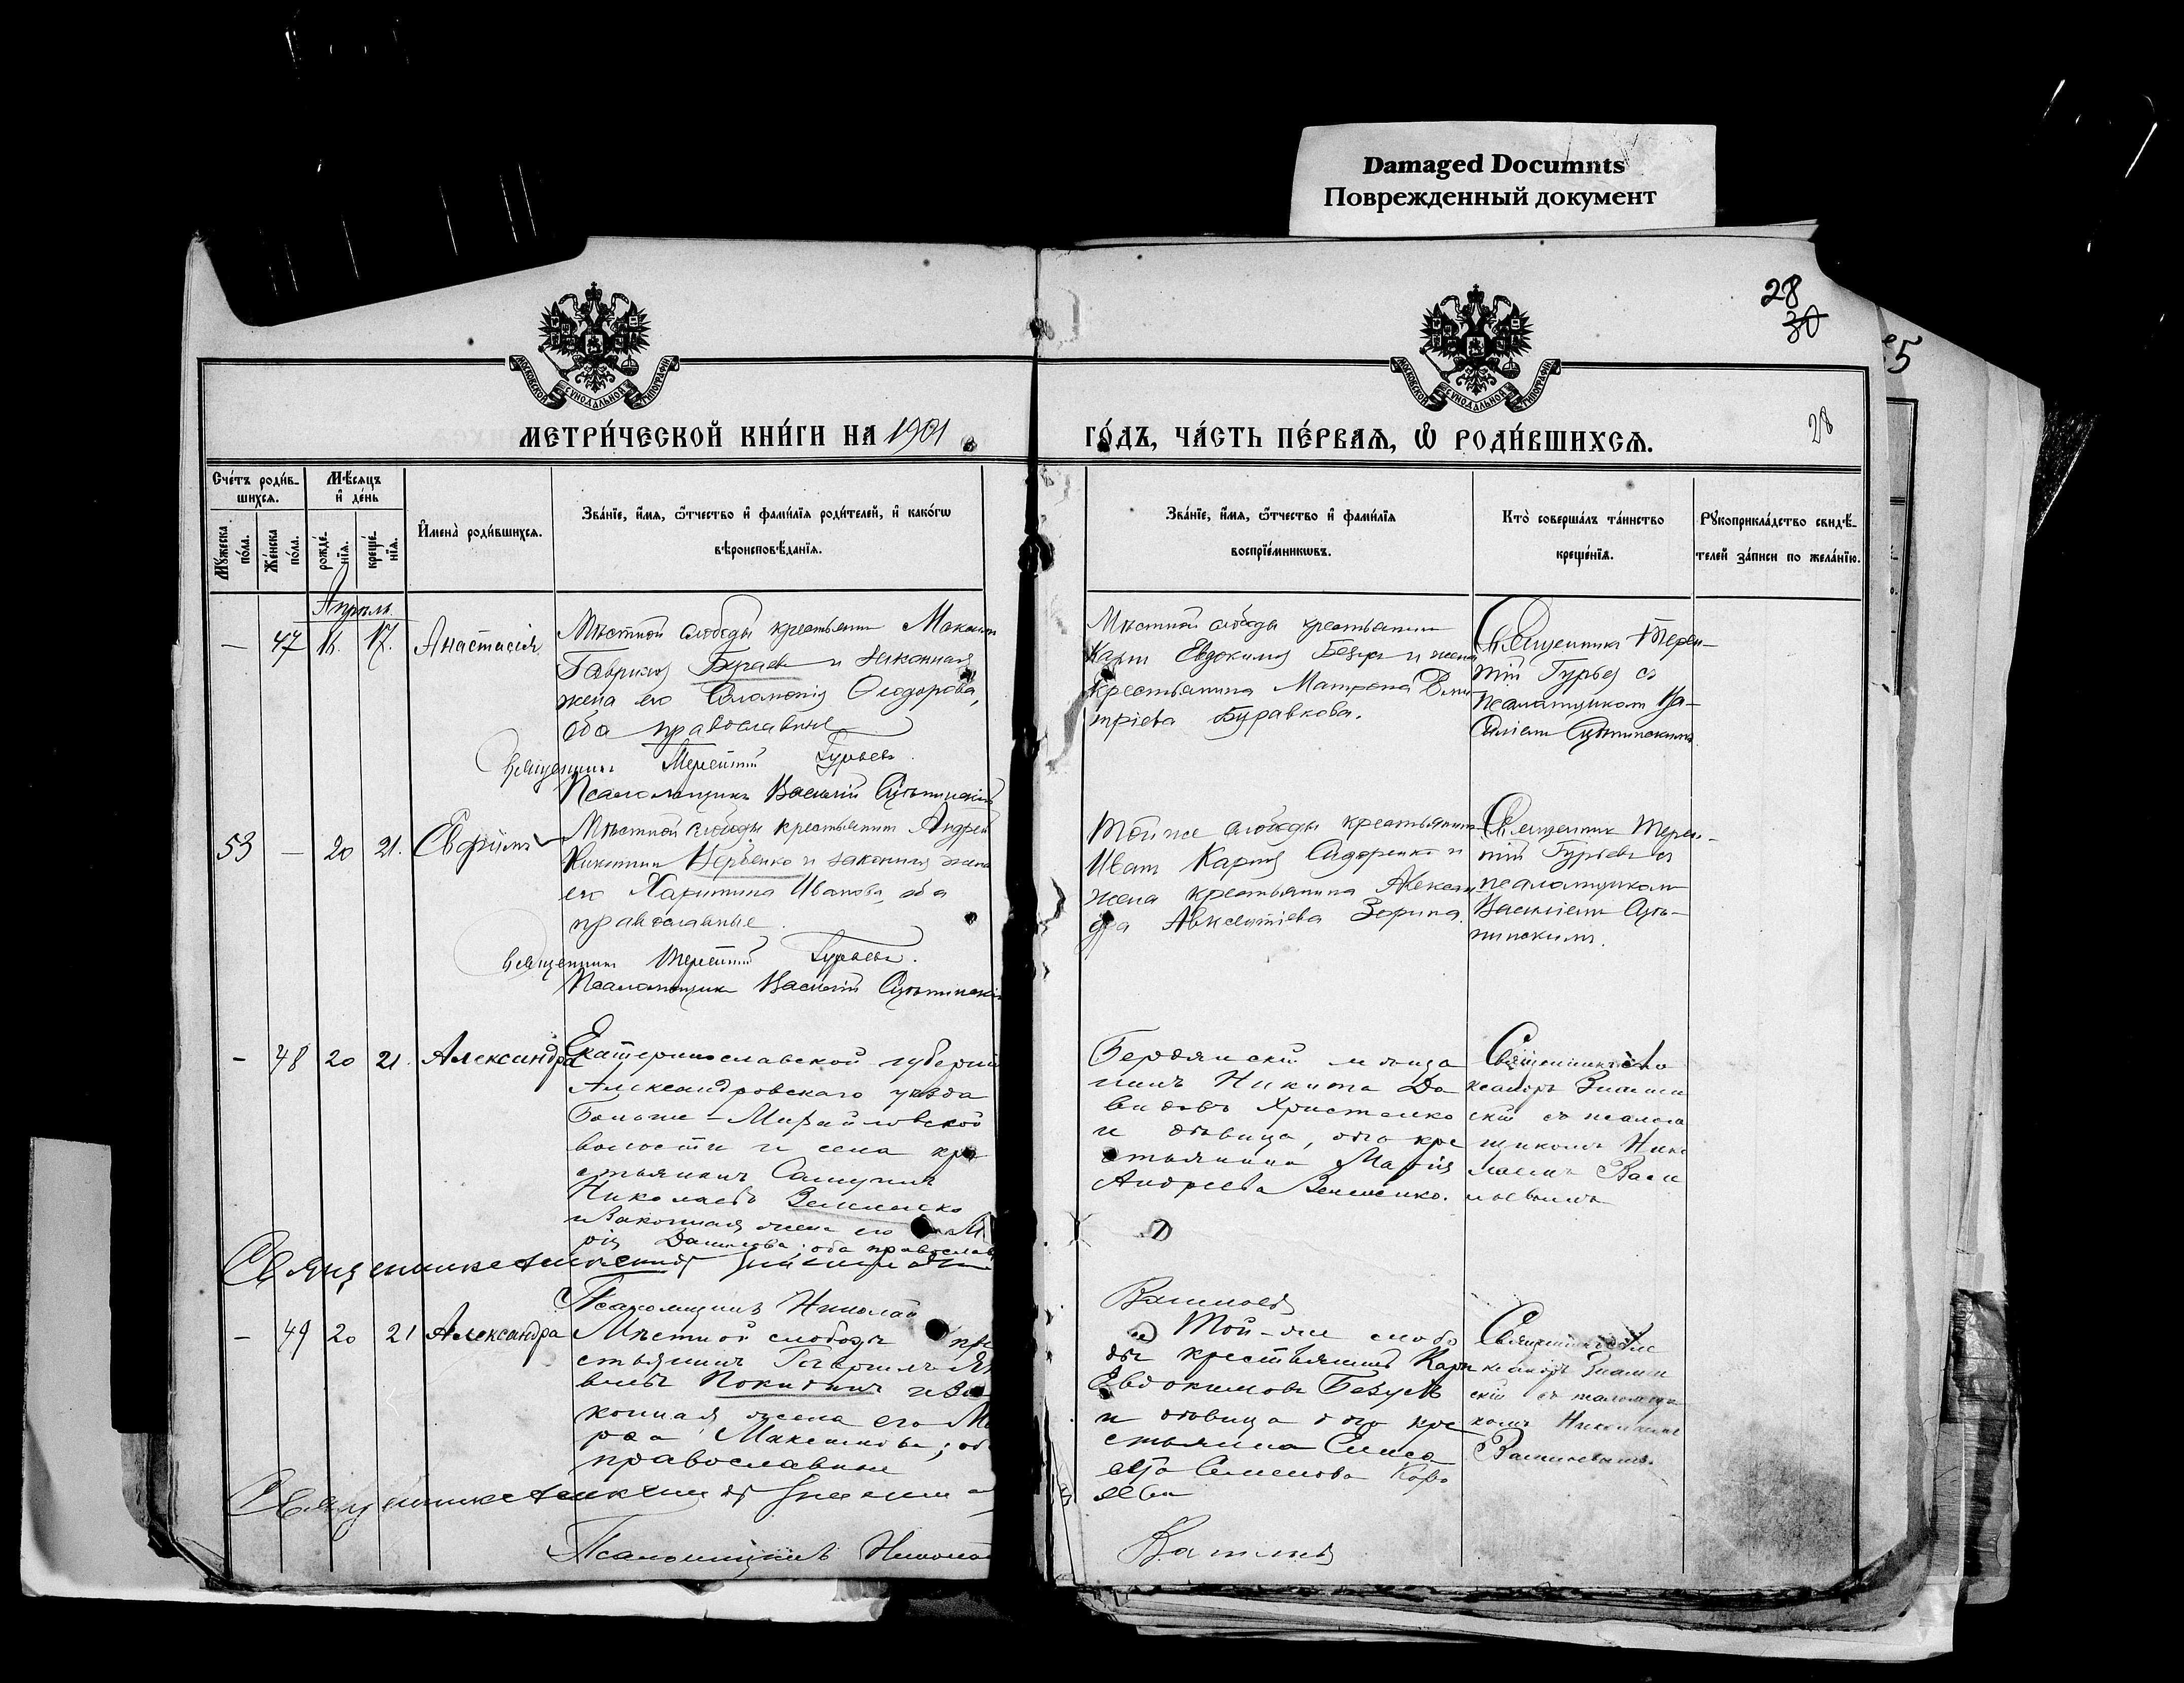 Damaged Documnts
Поврежденный документ
28
30
5
28
МОСКОВСКОЙ СѴНОДАЛЬНОЙ ТИПОГРАФІИ
МОСКОВСКОЙ СѴНОДАЛЬНОЙ ТИПОГРАФІИ
МЕТРИ́ЧЕСКОЙ КНИ́ГИ НА 1901
ГО́ДЪ, ЧА́СТЬ ПЕ́РВАѦ, Ѽ РОДИ́ВШИХСѦ.
Сче́тъ роди́в-
шихсѧ.
Мѣ́сѧцъ
и҆ де́нь
Мꙋ́жеска по́ла.
Же́нска по́ла.
рожде́-
нїѧ.
креще́-
нїѧ.
И҆мена̀ роди́вшихсѧ.
Зва́нїе, и҆́мѧ, ѻ҆́тчество и҆ фами́лїѧ роди́телей, и҆ како́гѡ
вѣроисповѣ́данїѧ.
Зва́нїе, и҆́мѧ, ѻ҆́тчество и҆ фами́лїѧ
воспрїе́мникѡвъ.
Кто̀ соверша́лъ та́инство
креще́нїѧ.
Рꙋкоприкла́дство свидѣ́-
телей за́писи по жела́нїю.
Апрѣль.
— 47 16. 17. Анастасія
Мѣстной слободы крестьянинъ Максимъ
Гавриловъ и законная
жена его Соломонія Ѳеодорова,
оба православные
Священникъ Терентій Гурьевъ.
Псаломщикъ Василій
Мѣстной слободы крестьянинъ
Карпъ Евдокимовъ Безусъ и жена
крестьянина Матрона Дими-
тріева Буравкова.
Священникъ Терен-
тій Гурьевъ съ
псаломщикомъ Ва-
силіемъ
53 — 20 21. Евфимъ
Мѣстной слободы крестьянинъ Андрей
Никитинъ Вербенко и законная жена
его Харитина Иванова, оба
православные.
Священникъ Терентій Гурьевъ.
Псаломщикъ Василій
Той же слободы крестьянинъ
Иванъ Карповъ Сидоренко и
жена крестьянина Алексан-
дра Авксентіева Зорина.
Священникъ Терен-
тій Гурьевъ съ
псаломщикомъ
Василіемъ
— 48 20 21. Александра
Екатеринославской губерніи
Александровскаго уѣзда
Больше-Михайловской
волости и села кре
стьянинъ Самуилъ
Николаевъ
и законная жена его Ма
рія Данилова; оба православ
Священникъ Александръ
Псаломщикъ Николай
Бердянскій мѣща
нинъ Никита Да
видовъ Христенко
и дѣвица, дочь кре
стьянина Марія
Андреева
Священникъ Але
ксандръ
скій съ псалом
щикомъ Нико
лаемъ Васи
льевымъ
Васильевъ
— 49 20 21 Александра
Мѣстной слободы кре
стьянинъ Гавріилъ Як
влевъ и за
конная жена его Ма
рѳа Максимова; оба
православные
Священникъ Александръ
Псаломщикъ Николай
Той-же слобо
ды крестьянинъ Карпъ
Евдокимовъ Безусъ
и дѣвица дочь кре
стьянина Елиса
вета Семенова Коро
лева
Священникъ Але
ксандръ
скій съ псаломщи
комъ Николаемъ
Васильевымъ.